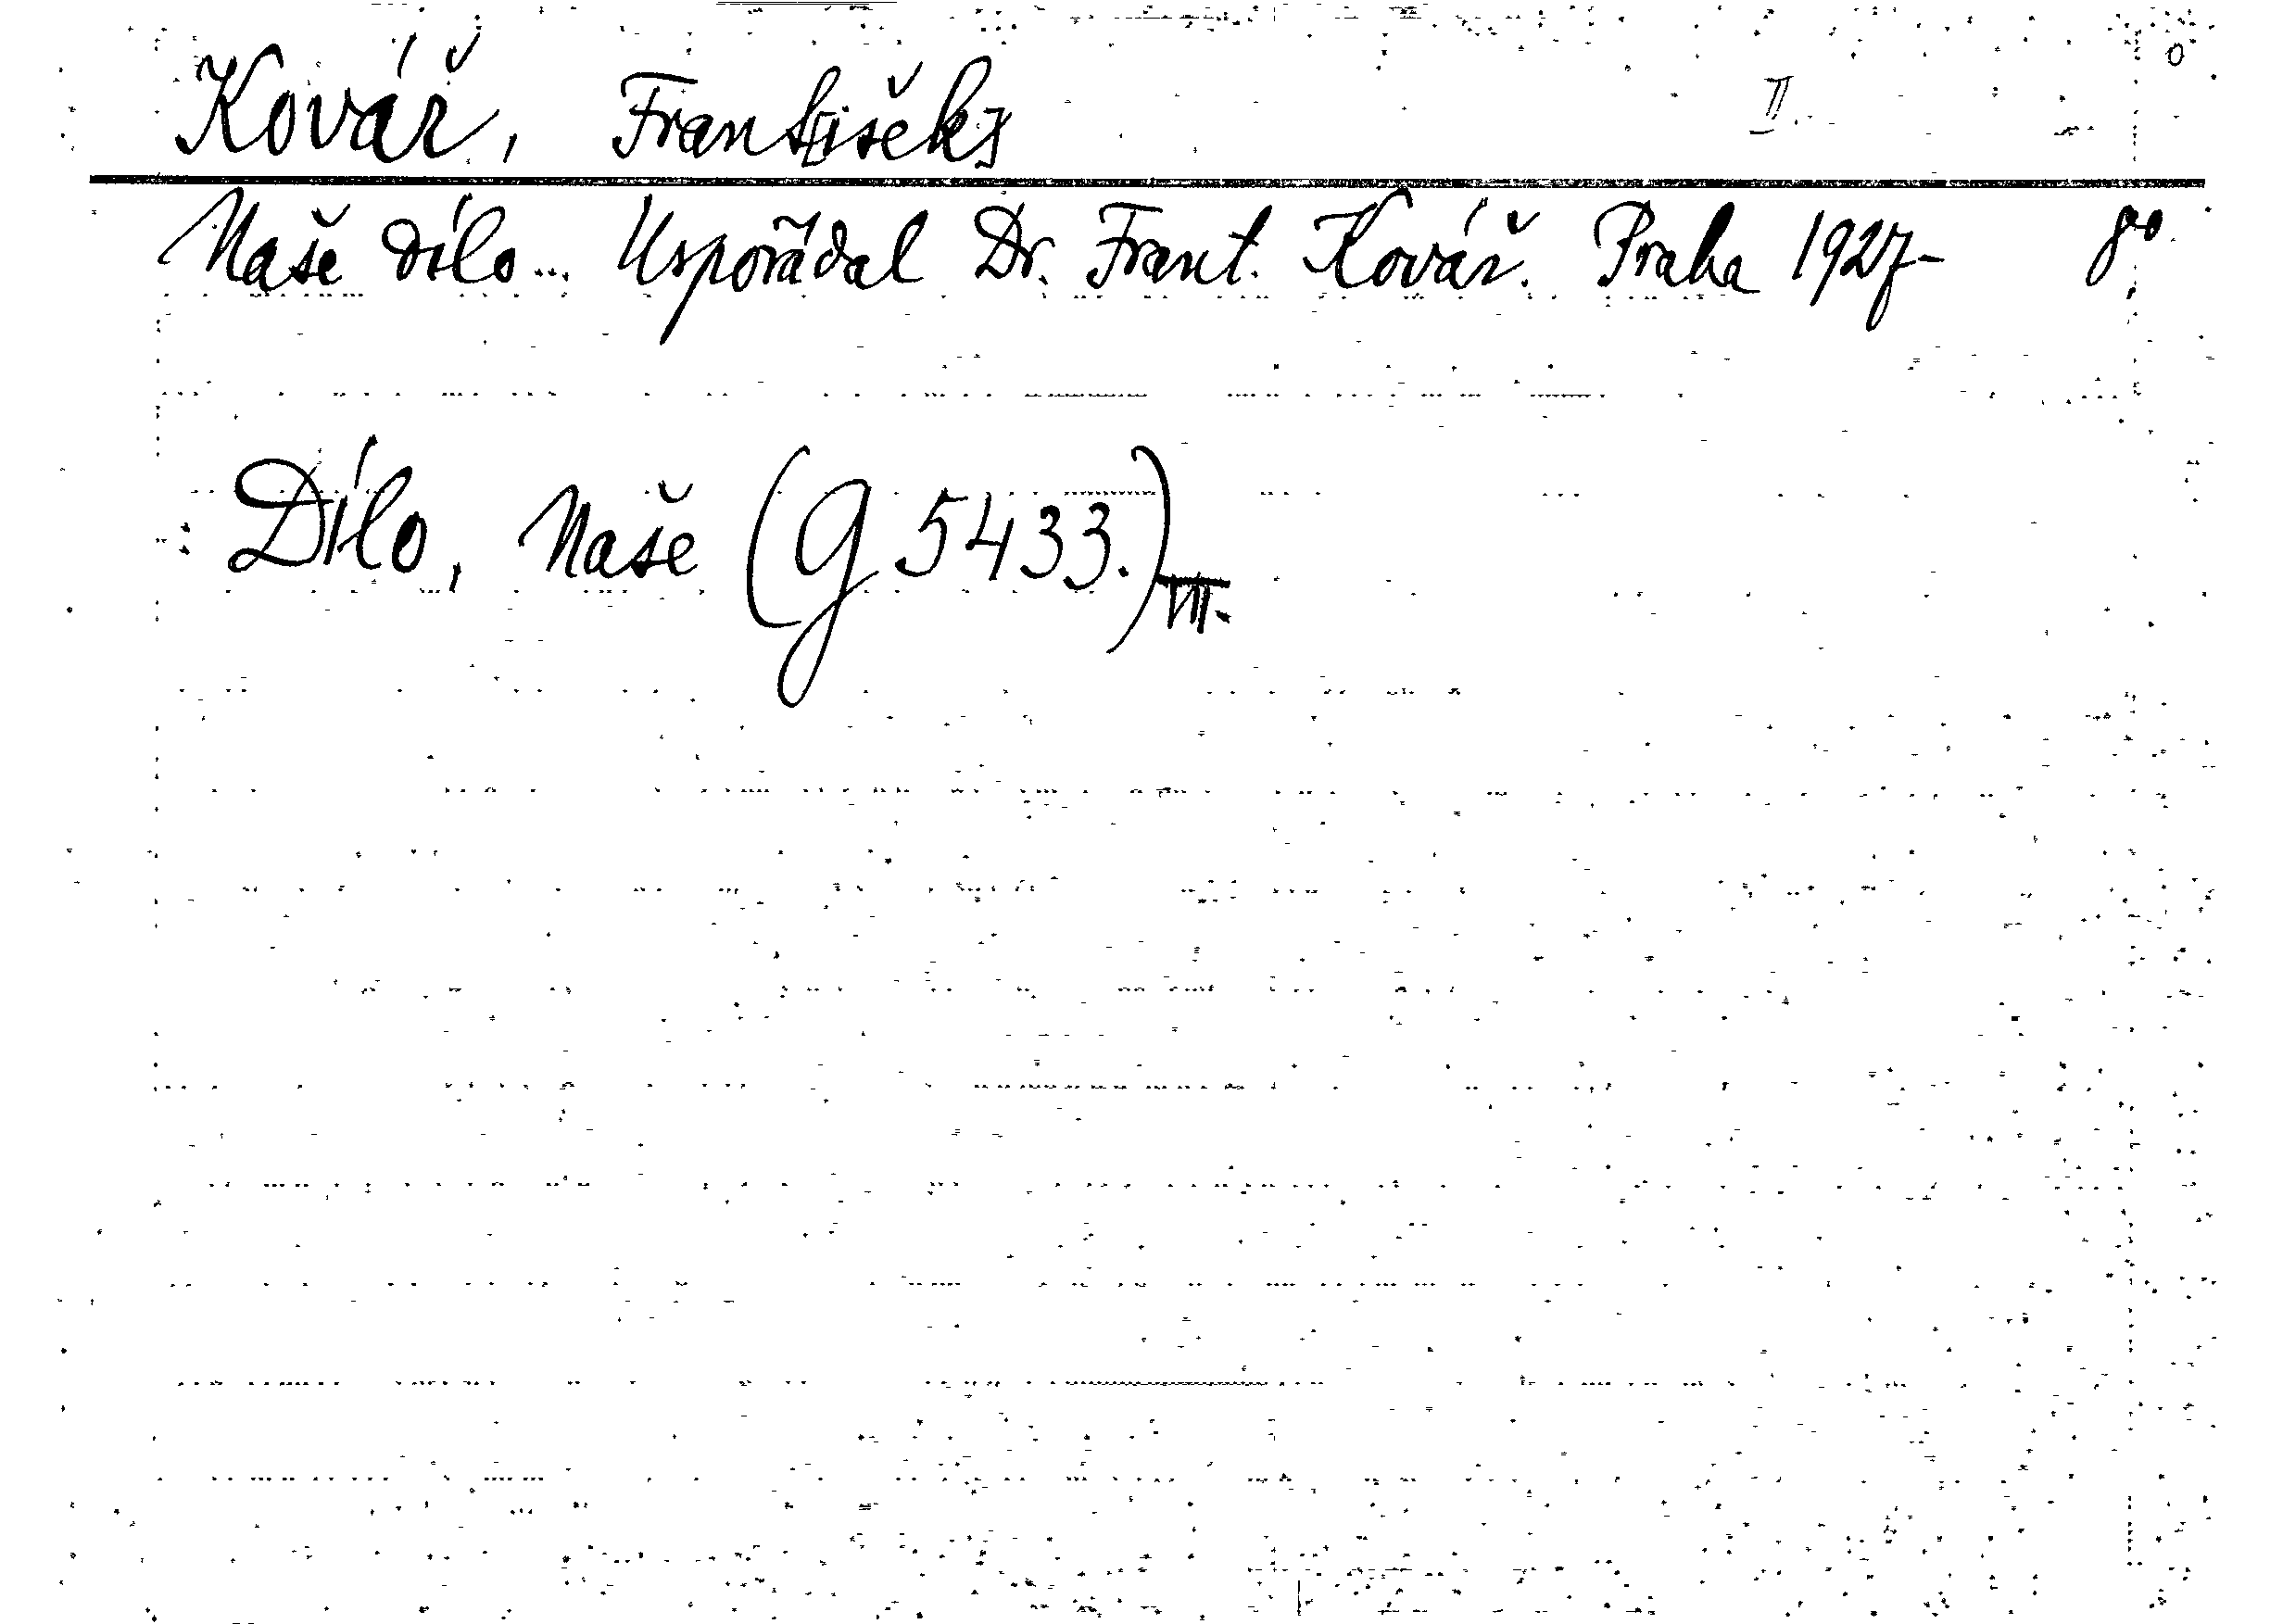 Kovář, Frant[išek] II.
Naše dílo... Uspořádal Dr. Frant. Kovář. Praha 1927- 8°.
: Dílo, Naše (G 5433.) VII.